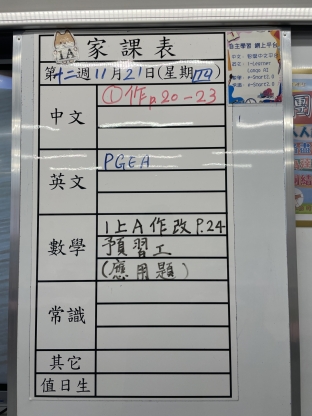 1A 家課表
第十二週11月21日(星期四)
中文
①作p20-23
英文
PGEA
數學
1上A作改P.24
預習工
(應用題)
常識
其它
值日生
自主學習 網上平台